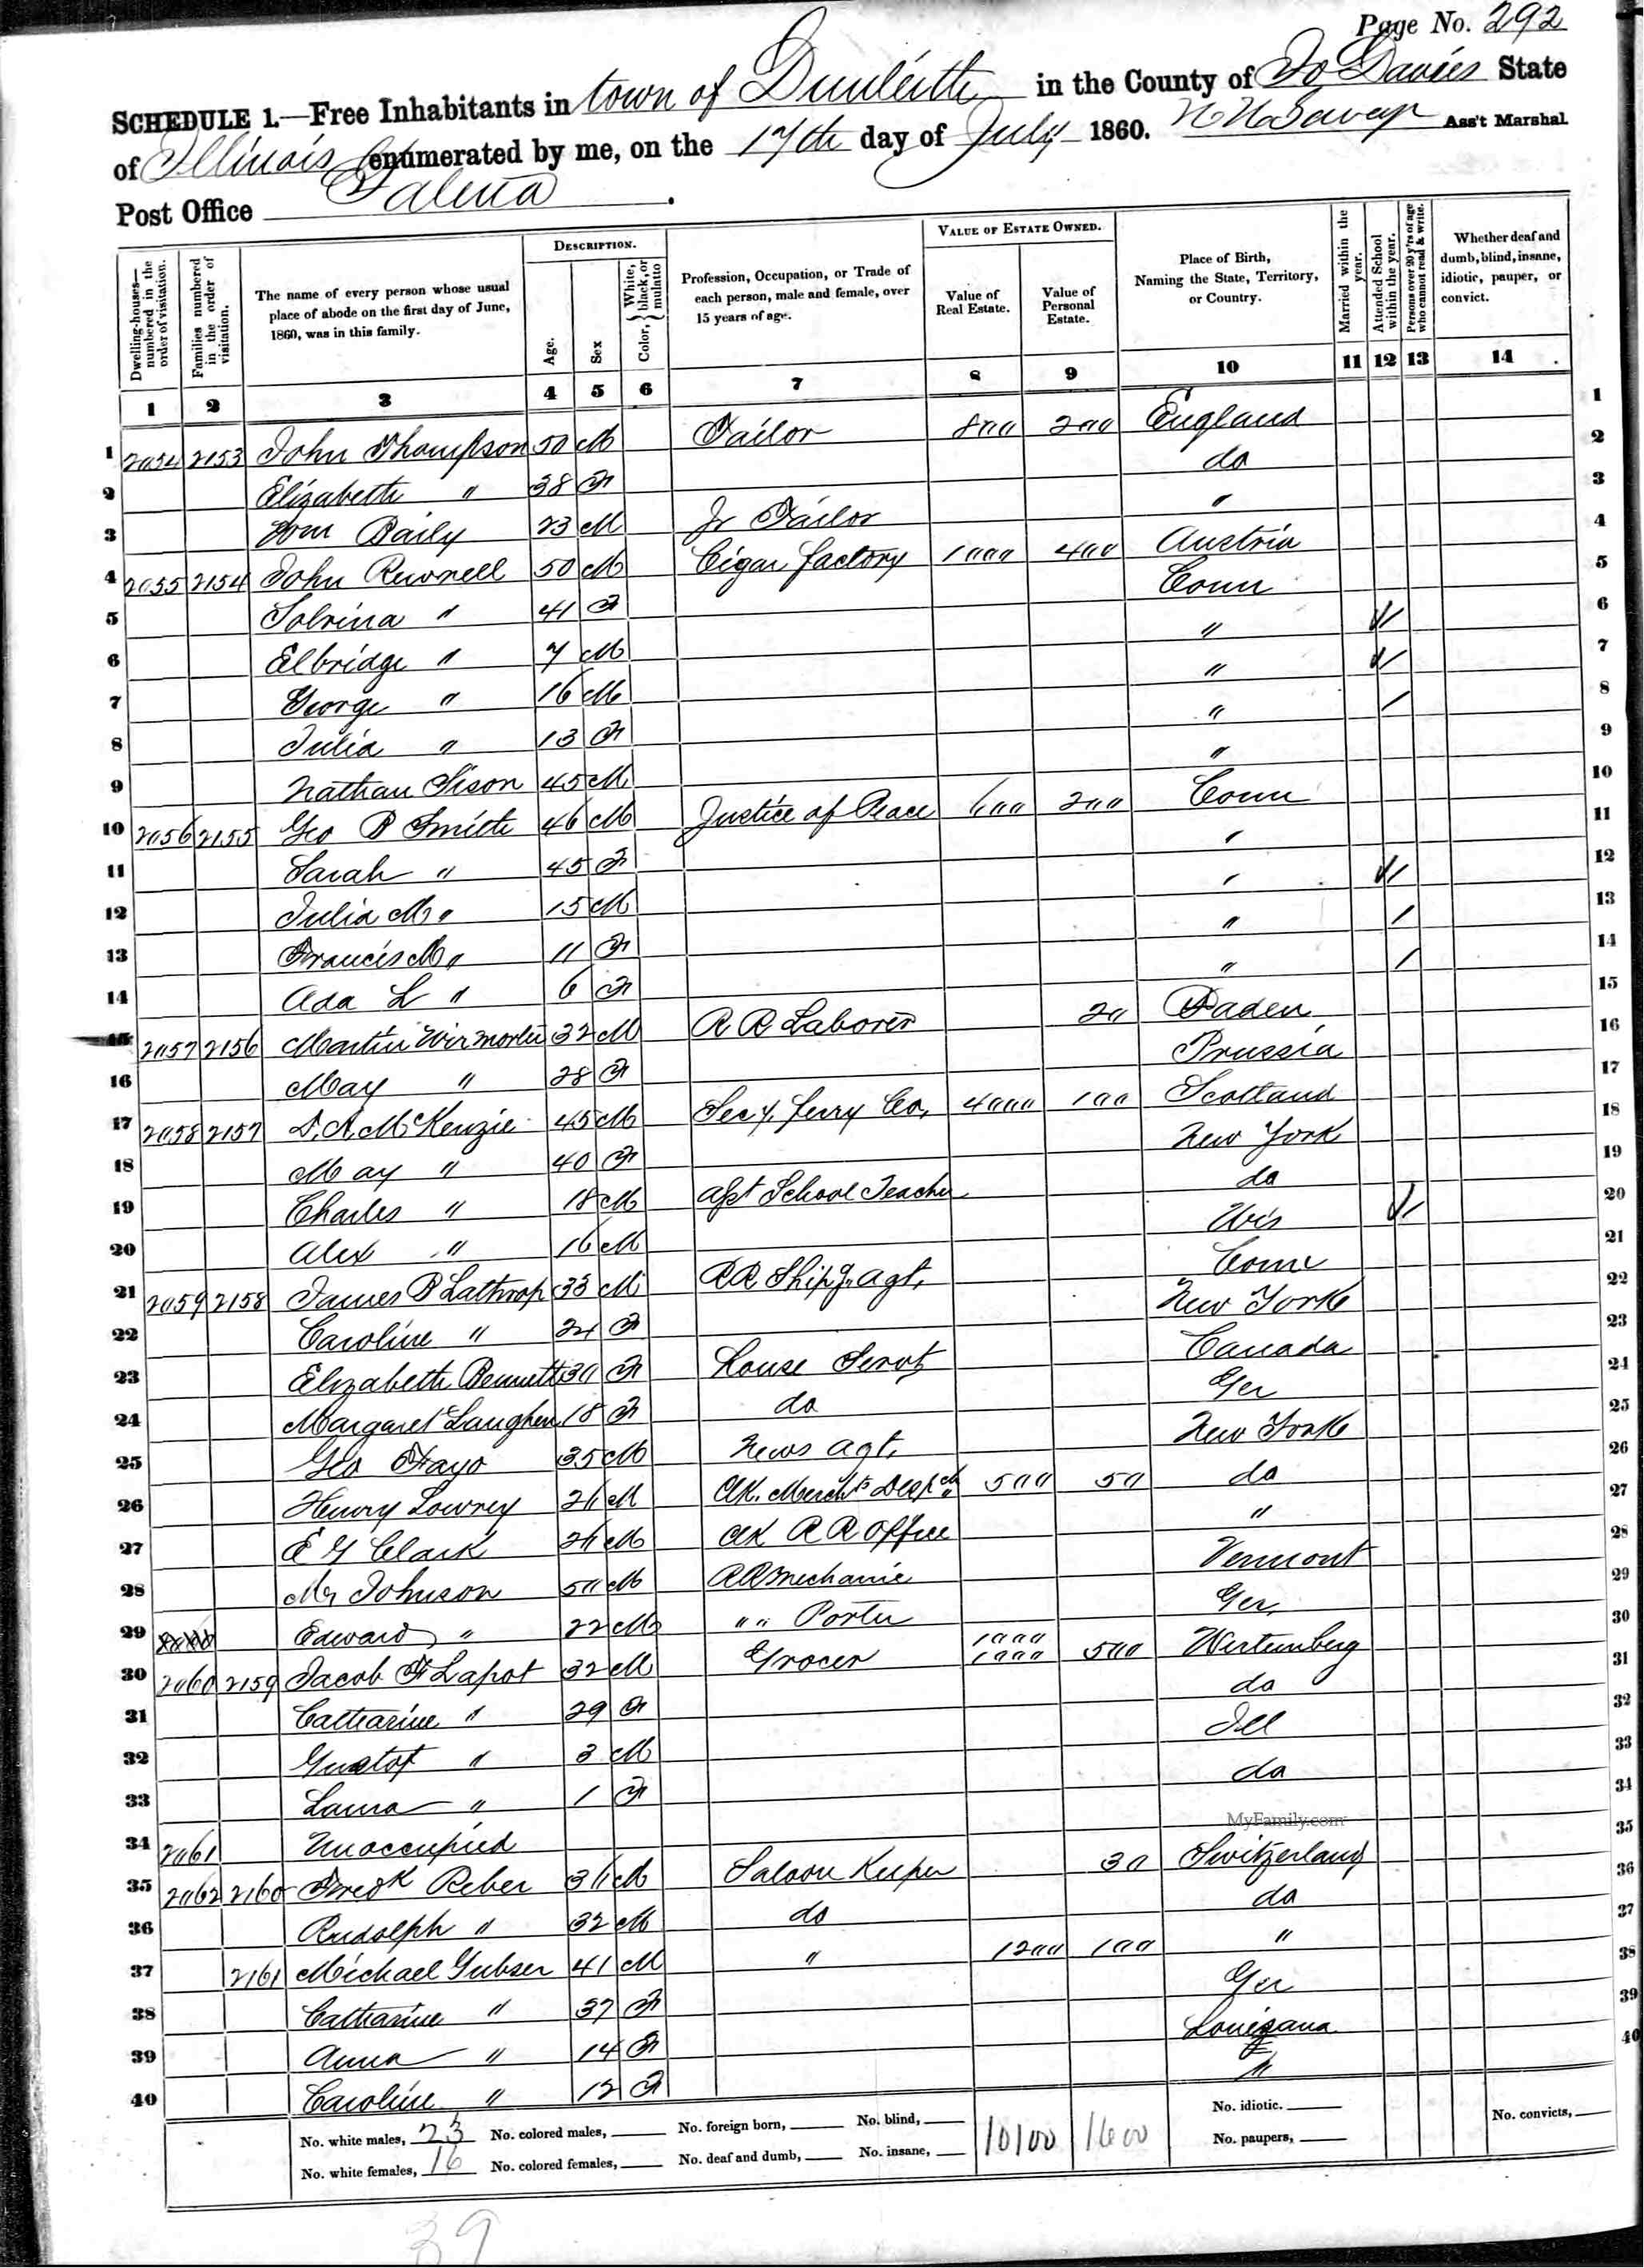 Page No. 292
SCHEDULE 1.—Free Inhabitants in town of Dunleith in the County of Jo Davies State
of Illinois enumerated by me, on the 17th day of July 1860. Ass't Marshal
Post Office Galena.
DESCRIPTION. VALUE OF ESTATE OWNED.
Dwelling-houses—numbered in the order of visitation. Families numbered in the order of visitation. The name of every person whose usual place of abode on the first day of June, 1860, was in this family. Age. Sex Color, {White, black, or mulatto Profession, Occupation, or Trade of each person, male and female, over 15 years of age. Value of Real Estate. Value of Personal Estate. Place of Birth, Naming the State, Territory, or Country. Married within the year. Attended School within the year. Persons over 20 y'rs of age who cannot read & write. Whether deaf and dumb, blind, insane, idiotic, pauper, or convict.
1 2 3 4 5 6 7 8 9 10 11 12 13 14
1 2054 2153 John Thompson 50 M Tailor 800 200 England 1
2 Elizabeth " 38 F do 2
3 Wm Baily 23 M Jr Tailor " 3
4 2055 2154 John 50 M Cigar factory 1000 400 Austria 4
5 Sabrina " 41 F Conn 5
6 Elbridge " 7 M " 6
7 George " 16 M " 7
8 Julia " 13 F " 8
9 Nathan Tison 45 M " 9
10 2056 2155 Geo P Smith 46 M Justice of Peace 600 200 Conn 10
11 Sarah " 45 F " 11
12 Julia M " 15 M " 12
13 Francis M " 11 F " 13
14 Ada L " 6 F " 14
15 2057 2156 Martin 32 M R R Laborer 20 Baden 15
16 May " 28 F Prussia 16
17 2058 2157 D. A. McKenzie 45 M Secy. ferry Co. 4000 100 Scotland 17
18 May " 40 F New York 18
19 Charles " 18 M Asst School Teacher do 19
20 Alex " 16 M Wis 20
21 2059 2158 James P Lathrop 33 M RR Ship'g. agt. Conn 21
22 Caroline " 24 F New York 22
23 Elizabeth Bennett 30 F House Servt Canada 23
24 Margaret 18 F do Ger 24
25 Geo Fayo 35 M News agt. New York 25
26 Henry Lowrey 21 M Clk. Merchts Desp'ch 500 50 do 26
27 E G Clark 21 M Clk R R Office " 27
28 Mr Johnson 50 M RR mechanic Vermont 28
29 Edward " 22 M " " Porter Ger. 29
30 2060 2159 Jacob F Lapot 32 M Grocer 1000 1000 500 Wirtemberg 30
31 Catharine " 29 F do 31
32 Gustof " 3 M Ill 32
33 Laura " 1 F do 33
MyFamily.com
34 2061 Unoccupied 34
35 2062 2160 Fredk Reber 31 M Saloon Keeper 30 Switzerland 35
36 Rudolph " 32 M do do 36
37 2161 Michael Gubser 41 M " 1200 100 " 37
38 Catharine " 37 F Ger 38
39 Anna " 14 F Louisana 39
40 Caroline " 12 F " 40
No. white males, 23 No. colored males, No. foreign born, No. blind, 10100 1600 No. idiotic. No. convicts,
No. white females, 16 No. colored females, No. deaf and dumb, No. insane, No. paupers,
39